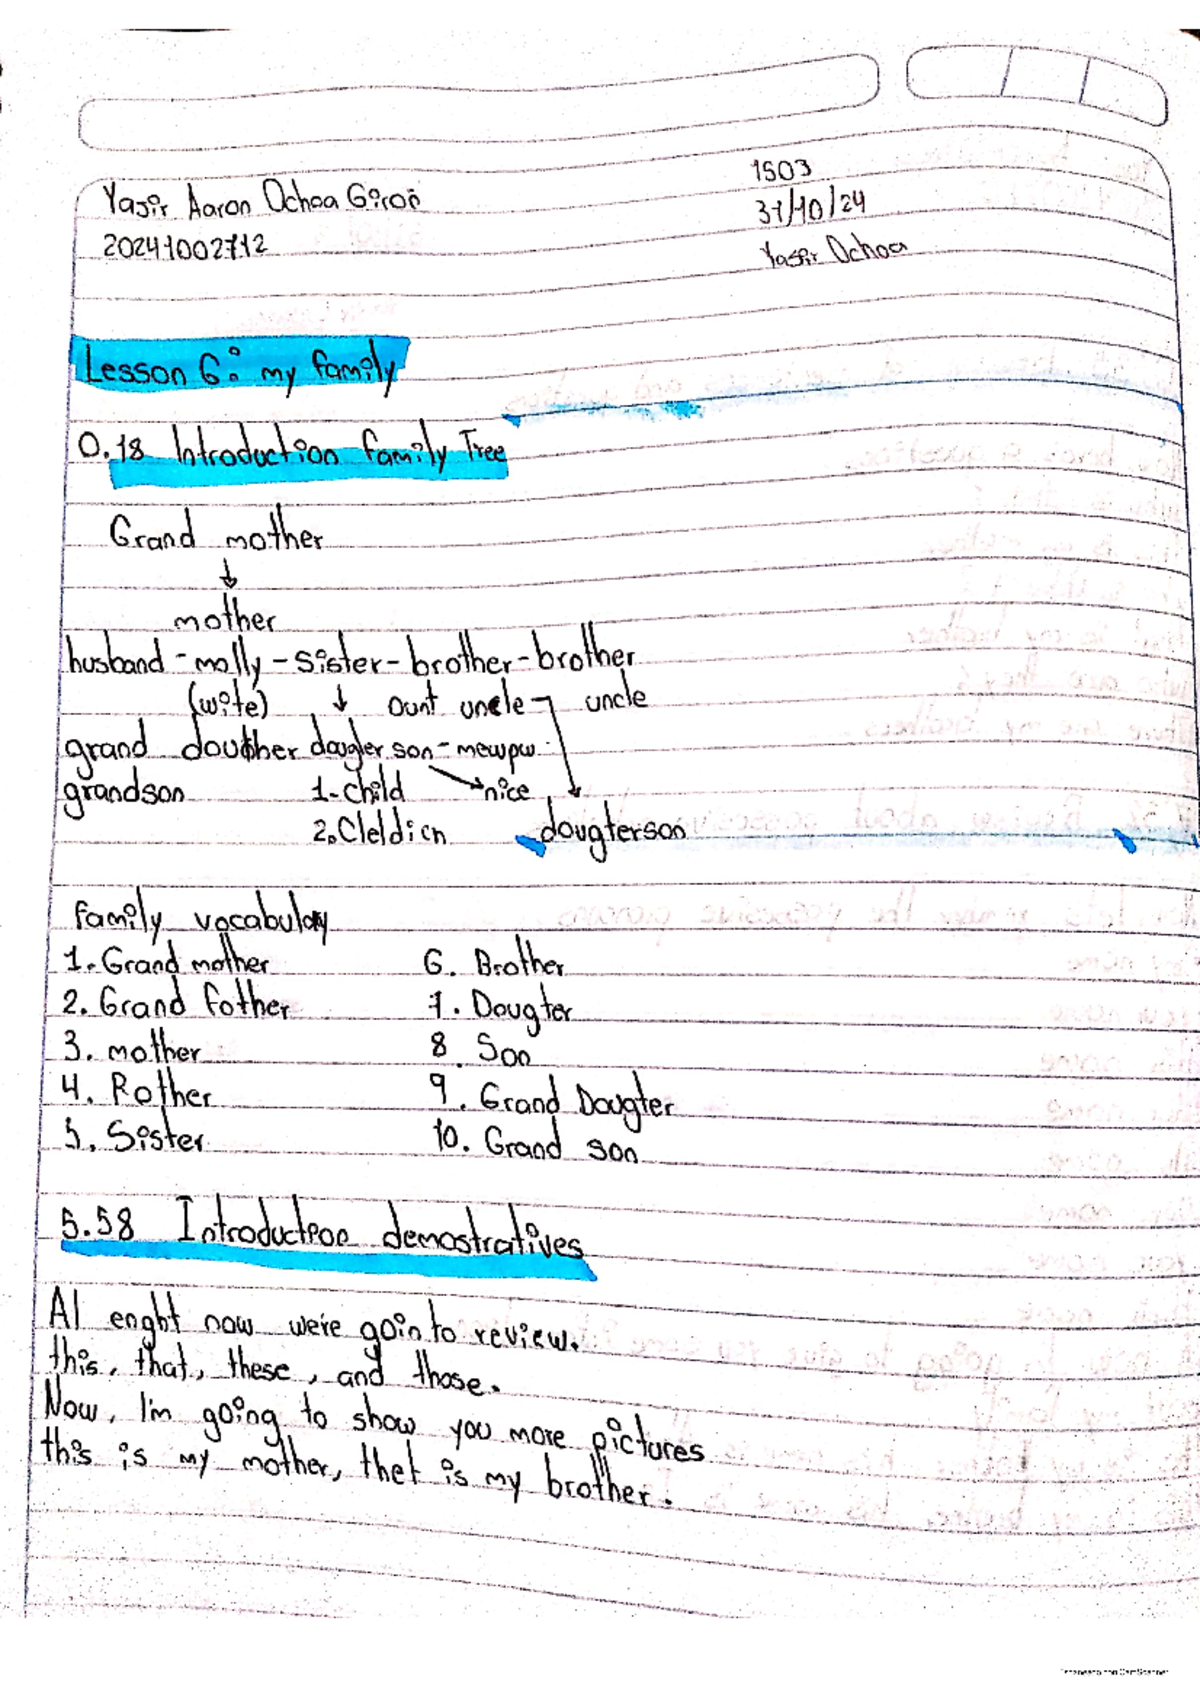 1503
Yasir Aaron Ochoa Giron
31/10/24
20241002712
Yasir Ochoa
Lesson 6: my family
0.18 Introduction family Tree
Grand mother
↓
mother
husband - molly - sister - brother - brother
(wite) ↓ ount uncle uncle
grand douther dougler son - mewpw
grandson 1- child nice
2. Cleldien dougterson
family vocabulary
1. Grand mother 6. Brother
2. Grand fother 7. Dougter
3. mother 8. Son
4. Rother 9. Grand Dougter
5. Sister 10. Grand son
5.58 Introduction demostratives
Al enght now we're goin to review.
this, that, these, and those.
Now, I'm going to show you more pictures
this is my mother, thet is my brother.